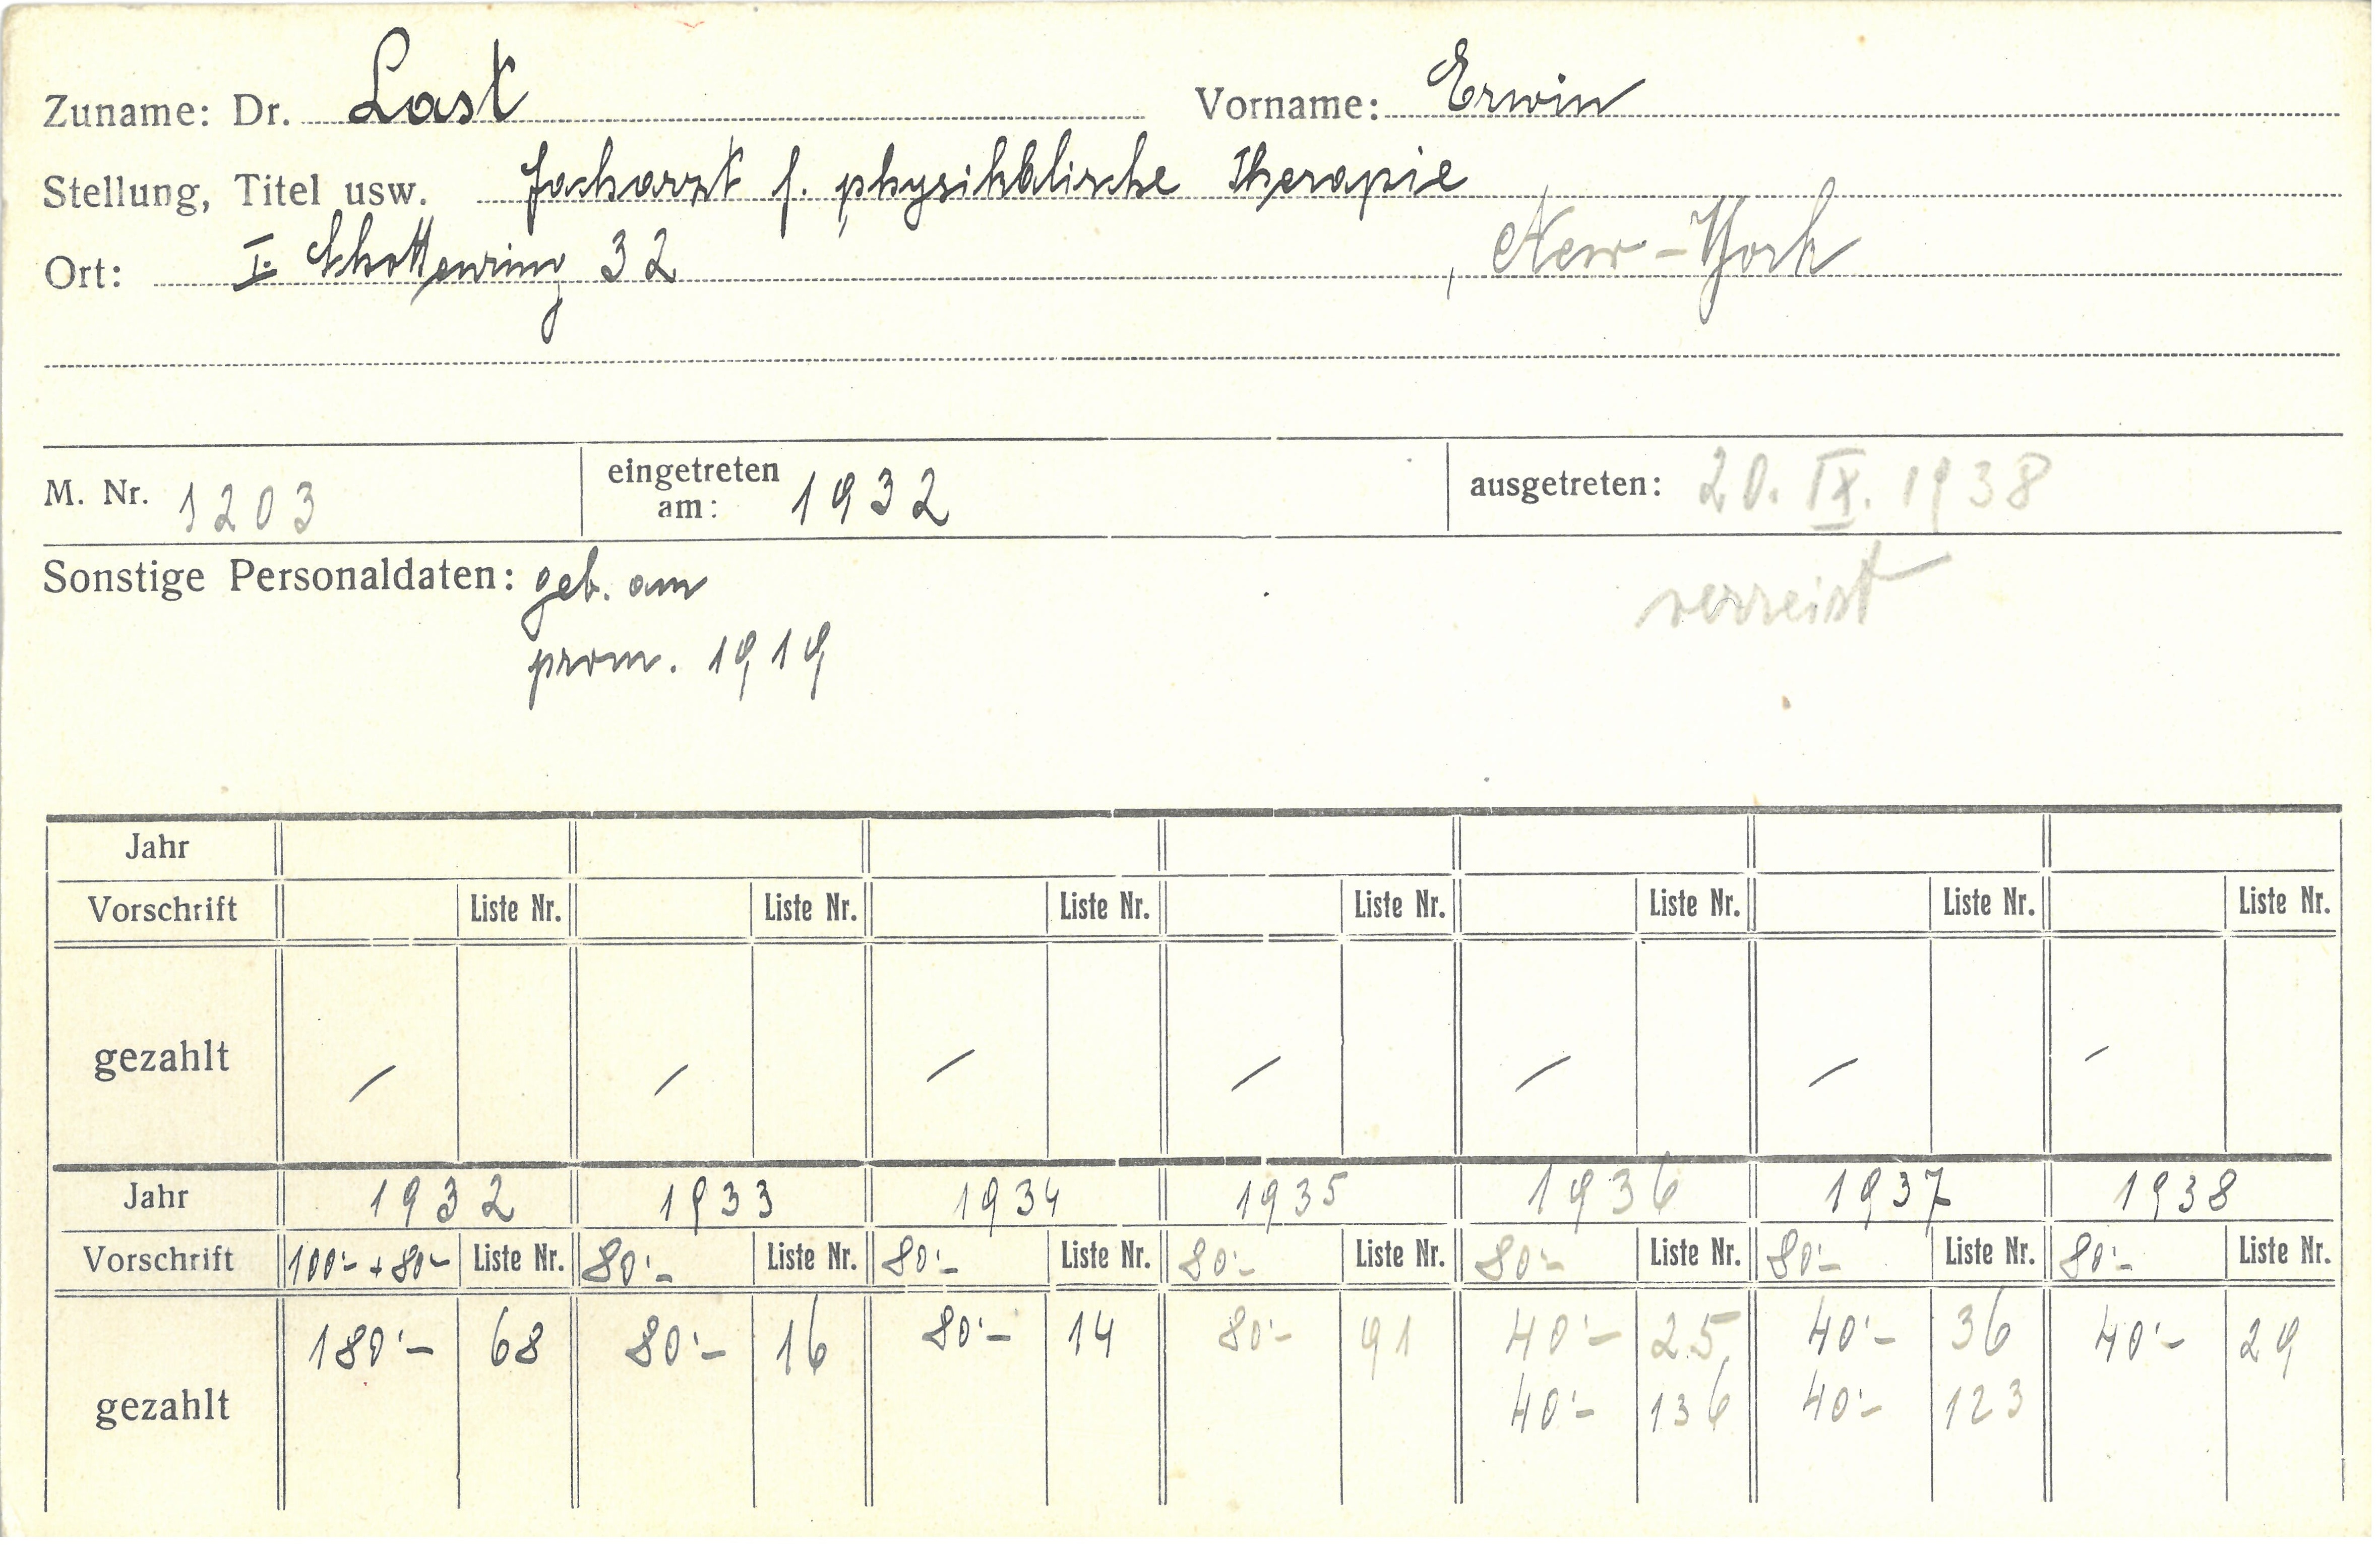 Zuname: Dr. Last Vorname: Erwin
Stellung, Titel usw. Facharzt f. physikalische Therapie
Ort: I. Schottenring 32, New-York
M. Nr. 1203 eingetreten am: 1932 ausgetreten: 20. IX. 1938
Sonstige Personaldaten: geb. am verreist
prom. 1919
Jahr
Vorschrift Liste Nr. Liste Nr. Liste Nr. Liste Nr. Liste Nr. Liste Nr. Liste Nr.
gezahlt / / / / / / /
Jahr 1932 1933 1934 1935 1936 1937 1938
Vorschrift 100'- + 80'- Liste Nr. 80'- Liste Nr. 80'- Liste Nr. 80'- Liste Nr. 80'- Liste Nr. 80'- Liste Nr. 80'- Liste Nr.
180'- 68 80'- 16 80'- 14 80'- 91 40'- 25 40'- 36 40'- 29
gezahlt 40'- 136 40'- 123